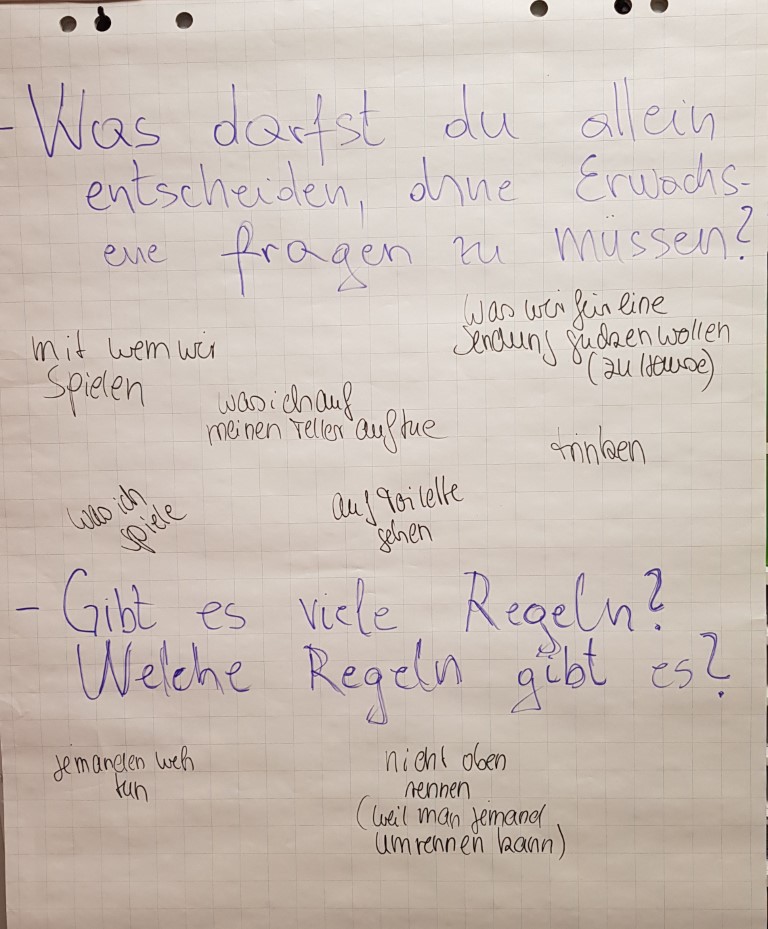 - Was darfst du allein
entscheiden, ohne Erwachs-
ene fragen zu müssen?
mit wem wir
spielen
was wir für eine
Sendung gucken wollen
(zu Hause)
was ich auf
meinen Teller auftue
trinken
was ich
spiele
auf Toilette
gehen
- Gibt es viele Regeln?
Welche Regeln gibt es?
jemanden weh
tun
nicht oben
rennen
(weil man jemand
umrennen kann)